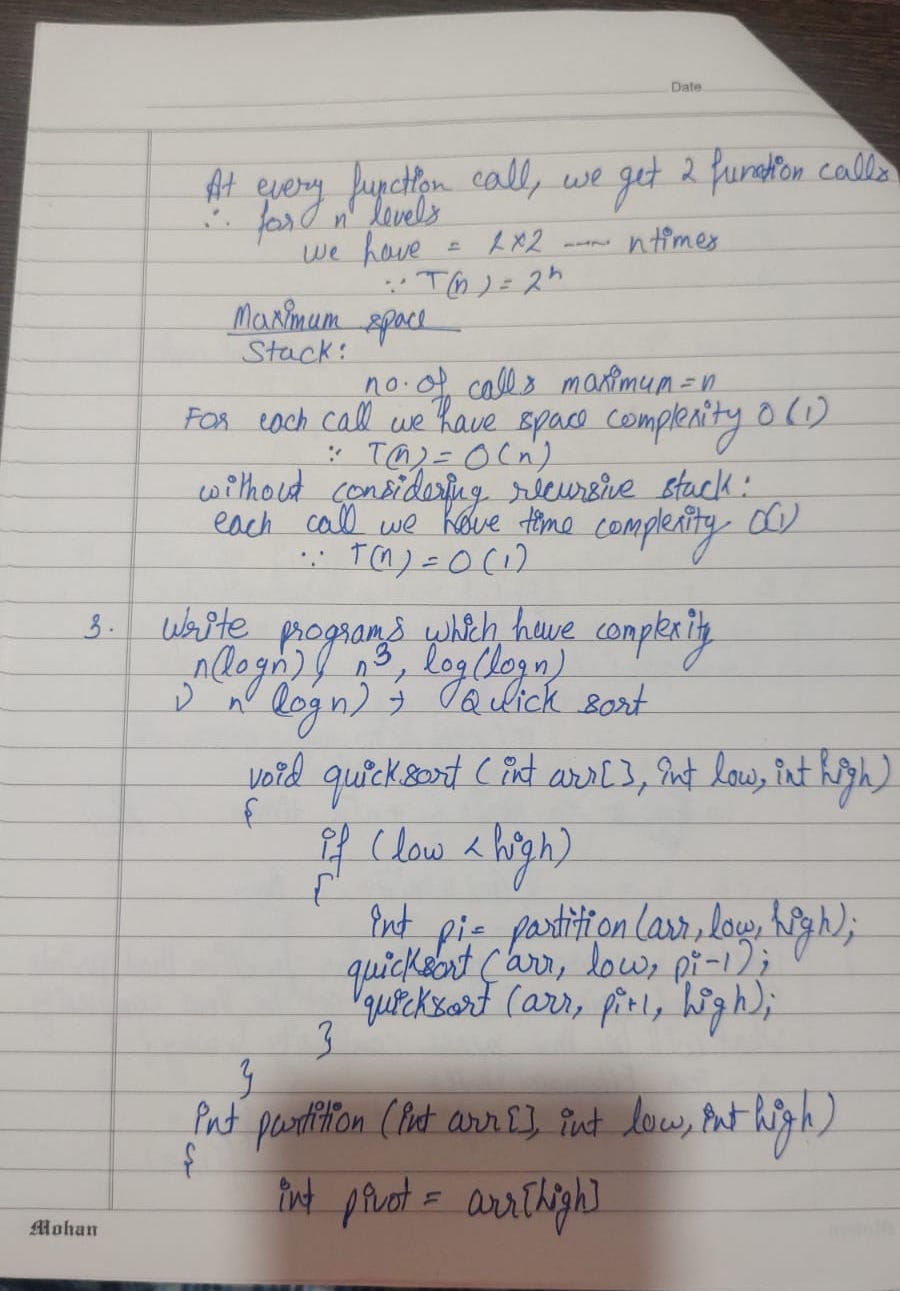 Date
At every function call, we get 2 function calls
∴ for n levels
we have = 2×2 ---- n times
∵ T(n) = 2ⁿ
Maximum space
Stack:
no. of calls maximum = n
For each call we have space complexity O(1)
∵ T(n) = O(n)
without considering recursive stack:
each call we have time complexity O(1)
∵ T(n) = O(1)
3. Write programs which have complexity
n(logn), n³, log(logn)
i) n(logn) → Quick sort
void quicksort (int arr[], int low, int high)
{
if (low < high)
{
int pi = partition(arr, low, high);
quicksort (arr, low, pi-1);
quicksort (arr, pi+1, high);
}
}
int partition (int arr[], int low, int high)
{
int pivot = arr[high]
Mohan